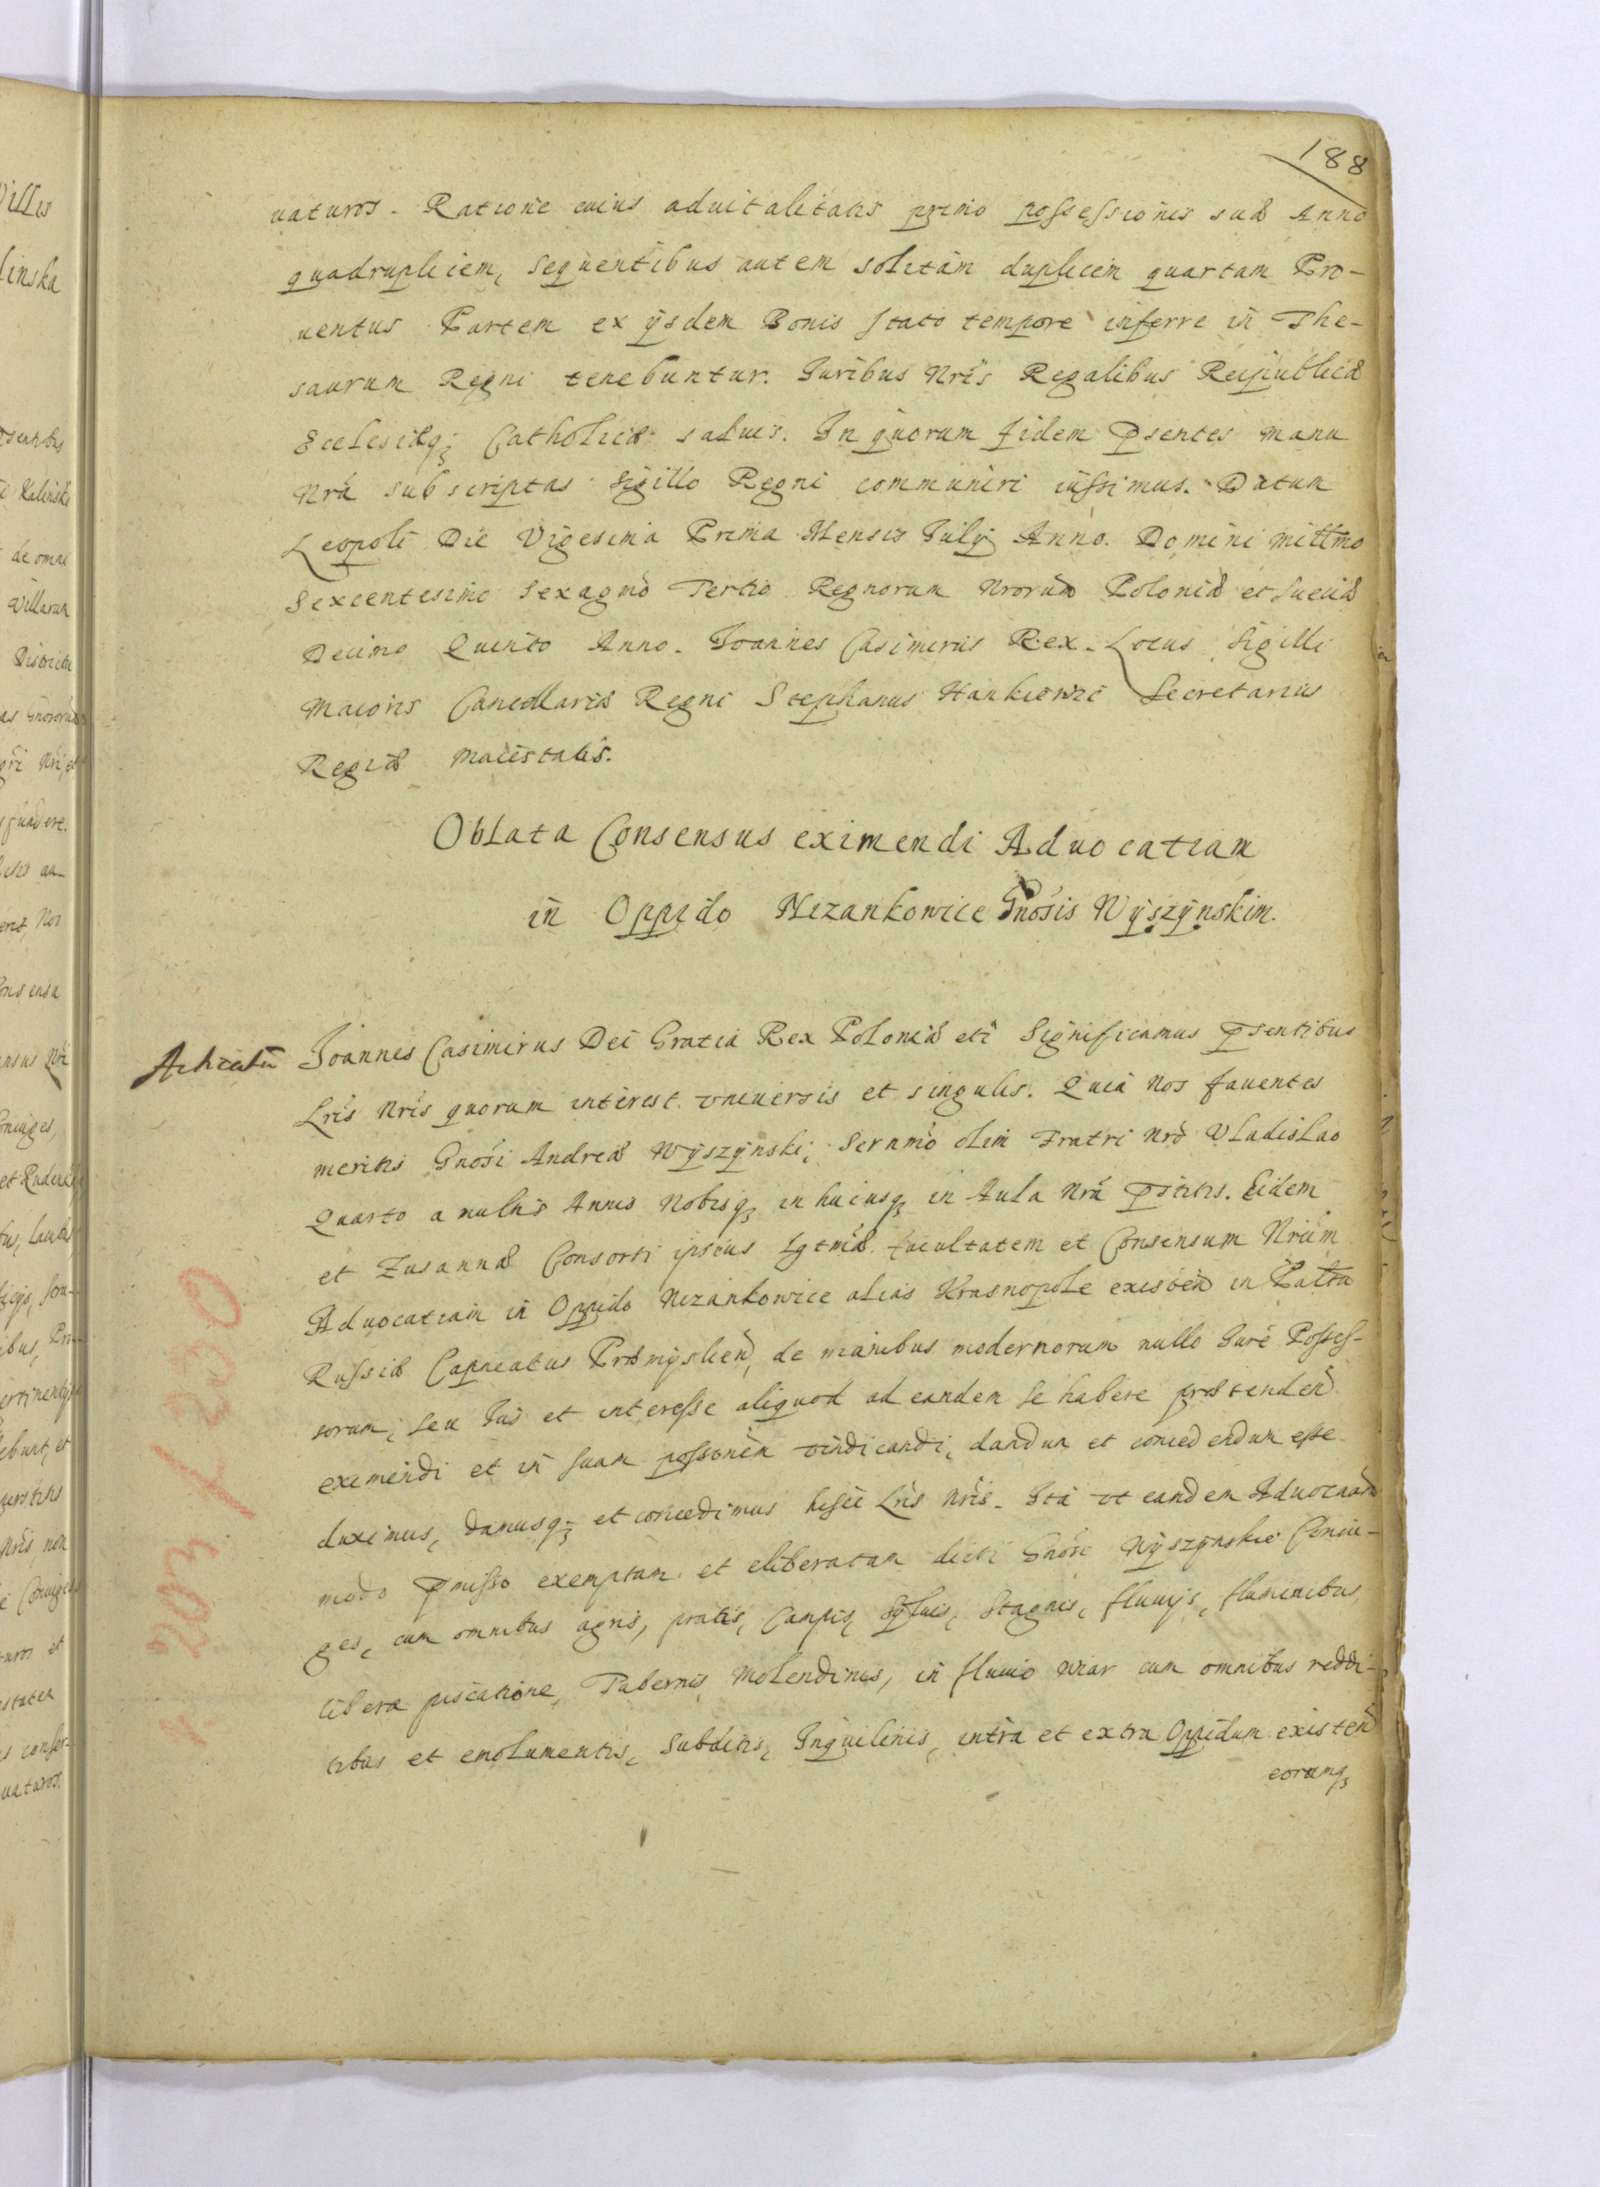 188
uaturos. Ratione cuius aduitalitatis primo possessionis suæ Anno
quadruplicem, sequentibus autem solitam duplicem quartam Pro-
uentus Partem ex ijsdem Bonis stato tempore inferre in The-
saurum Regni tenebuntur. Iuribus Nris Regalibus Reipublicæ
Ecclesiæq; Catholicæ saluis. In quorum fidem psentes manu
Nrã subscriptas Sigillo Regni communiri iussimus. Datum
Leopoli Die Vigesima Prima Mensis Iulij Anno. Domini Millmo
Sexcentesimo Sexagmo Tertio Regnorum Nrorum Poloniæ et Sueciæ
Decimo Quinto Anno. Ioannes Casimirus Rex. Locus Sigilli
Maioris Cancellariæ Regni Stephanus Hankiewic Secretarius
Regiæ Maiestatis.
Oblata Consensus eximendi Aduocatiam
in Oppido Nizankowice Gnosis Wyszynskim.
Joannes Casimirus Dei Gratia Rex Poloniæ etc Significamus psentibus
Lris Nris quorum interest vniuersis et singulis. Quia Nos fauentes
meritis Gnosi Andreæ Wyszynski, Sernmo olim Fratri Nro Vladislao
Quarto a multis Annis Nobisq; in hucusq; in Aula Nrã pstitis. Eidem
et Zusannæ Consorti ipsius Lgtmæ facultatem et Consensum Nrum
Aduocatiam in Oppido Nizankowice alias Krasnopole existen in Paltu
Russiæ Capneatus Præmyslien, de manibus modernorum nullo Iure Posses-
sorum, seu Ius et interesse aliquod ad eandem se habere prætenden
eximendi et in suam possonem vindicandi, dandum et concedendum esse
duximus, damusq; et concedimus hisce Lris Nris. Ita vt eandem Aduocaam
modo pmisso exemptam et eliberatam dicti Gnosi Wyszynskie Coniu-
ges, cum omnibus agris, pratis, Campis, Syluis, Stagnis, fluuijs, fluminibus,
libera piscatione, Tabernis, Molendinis, in fluuio Wiar cum omnibus reddi-
tibus et emolumentis, Subditis, Inquilinis, intra et extra Oppidum existen
eorumq;